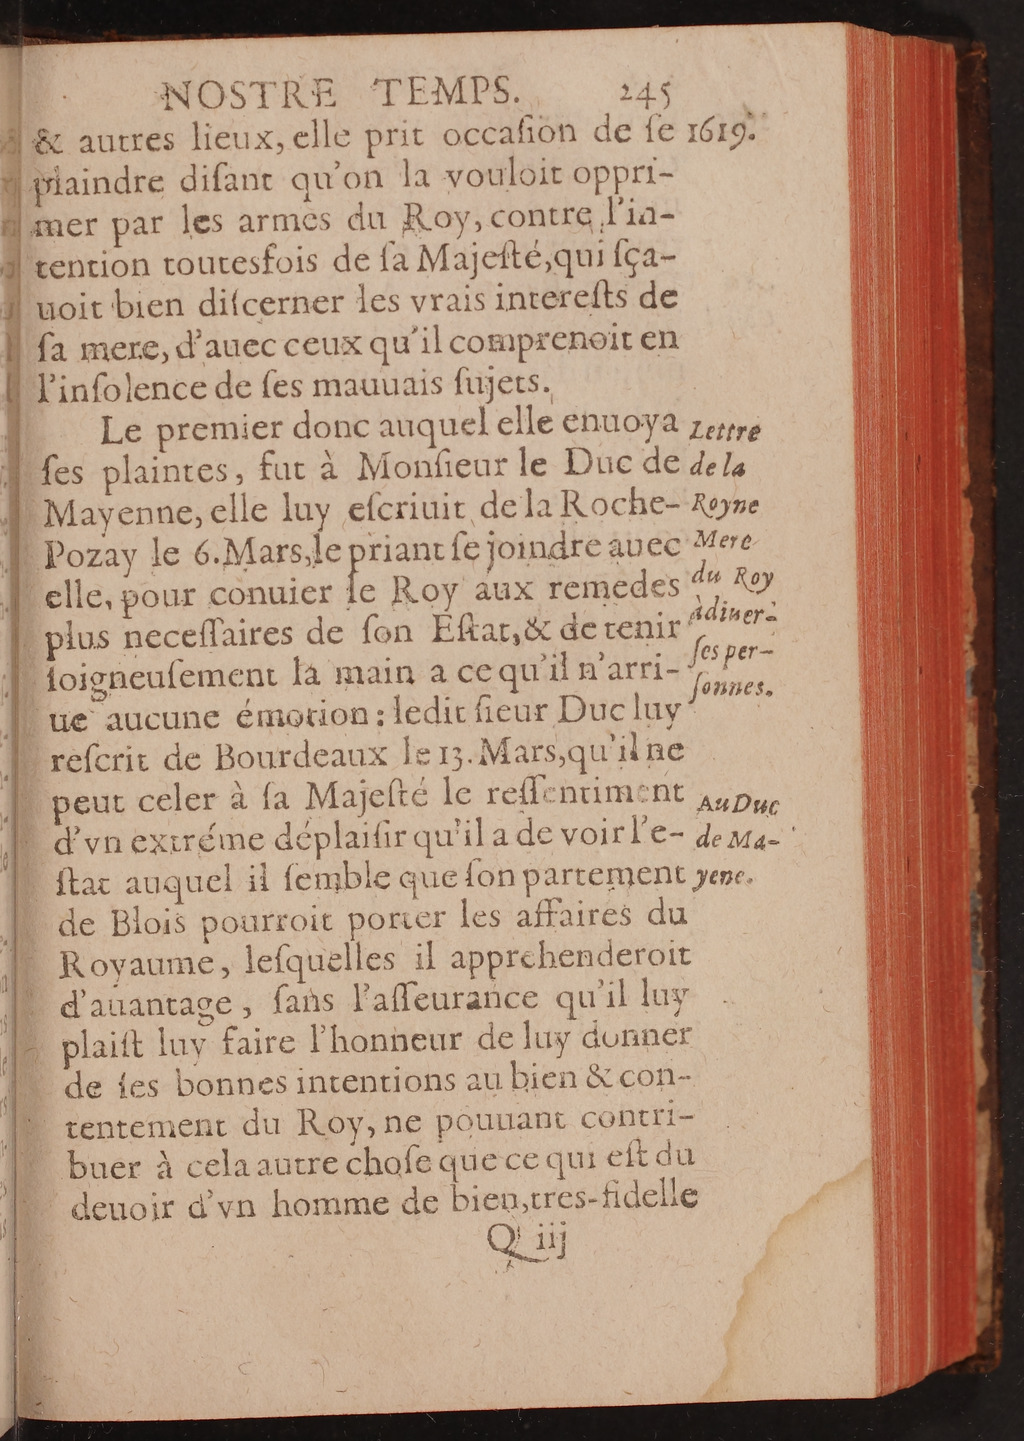 NOSTRE TEMPS. 245
& autres lieux, elle prit occaſion de ſe 1619.
plaindre diſant qu'on la vouloit oppri-
mer par les armes du Roy, contre l'in-
tention toutesfois de ſa Majeſté, qui ſça-
uoit bien diſcerner les vrais intereſts de
ſa mere, d'auec ceux qu'il comprenoit en
l'inſolence de ſes mauuais ſujets.
Le premier donc auquel elle enuoya Lettre
ſes plaintes, fut à Monſieur le Duc de de la
Mayenne, elle luy eſcriuit de la Roche- Royne
Pozay le 6. Mars, le priant ſe joindre auec Mere
elle, pour conuier le Roy aux remedes du Roy
plus neceſſaires de ſon Eſtat, & de tenir à diuer-
ſoigneuſement la main a ce qu'il n'arri- ſes per-
ue aucune émotion: ledit ſieur Duc luy ſonnes.
reſcrit de Bourdeaux le 13. Mars, qu'il ne
peut celer à ſa Majeſté le reſſentiment Au Duc
d'vn extréme déplaiſir qu'il a de voir l'e- de Ma-
ſtat auquel il ſemble que ſon partement yene.
de Blois pourroit porter les affaires du
Royaume, leſquelles il apprehenderoit
d'auantage, ſans l'aſſeurance qu'il luy
plaiſt luy faire l'honneur de luy donner
de ſes bonnes intentions au bien & con-
tentement du Roy, ne pouuant contri-
buer à cela autre choſe que ce qui eſt du
deuoir d'vn homme de bien, tres-fidelle
Q iij